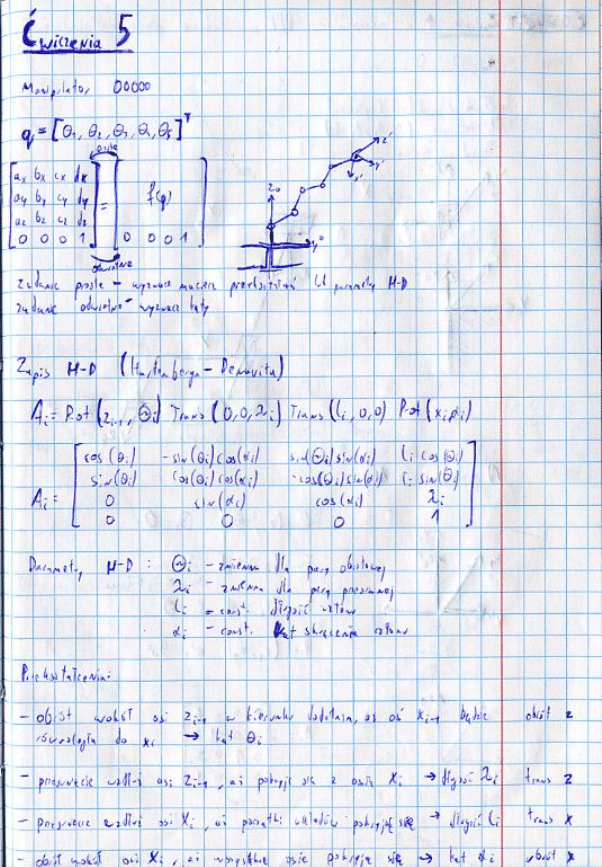 Ćwiczenia 5
Manipulator OOOOO
q = [Θ₁, Θ₂, Θ₃, Θ₄, Θ₅]ᵀ
proste
aₓ bₓ cₓ dₓ
a_y b_y c_y d_y = f(q)
a_z b_z c_z d_z
0 0 0 1 0 0 0 1
odwrotne
z₀ y₀ z' y' x'
zadanie proste - wyznacz macierz przekształceń i parametry H-D
zadanie odwrotne - wyznacz kąty
Zapis H-D (Hartenberga - Denavita)
Aᵢ = Rot(zᵢ₋₁, Θᵢ) Trans(0,0,λᵢ) Trans(lᵢ,0,0) Rot(xᵢ,αᵢ)
cos(Θᵢ) -sin(Θᵢ)cos(αᵢ) sin(Θᵢ)sin(αᵢ) lᵢ cos(Θᵢ)
sin(Θᵢ) cos(Θᵢ)cos(αᵢ) -cos(Θᵢ)sin(αᵢ) lᵢ sin(Θᵢ)
Aᵢ = 0 sin(αᵢ) cos(αᵢ) λᵢ
0 0 0 1
Parametry H-D: Θᵢ - zmienna dla pary obrotowej
λᵢ - zmienna dla pary przesuwnej
lᵢ = const. długość członu
αᵢ - const. kąt skręcenia członu
Przekształcenia:
- obrót wokół osi zᵢ₋₁ w kierunku dodatnim, aż oś xᵢ₋₁ będzie obrót z
równoległa do xᵢ → kąt Θᵢ
- przesunięcie wzdłuż osi zᵢ₋₁, aż pokryje się z osią xᵢ → długość λᵢ trans z
- przesunięcie wzdłuż osi xᵢ, aż początki układów pokryją się → długość lᵢ trans x
- obrót wokół osi xᵢ, aż wszystkie osie pokryją się → kąt αᵢ obrót x